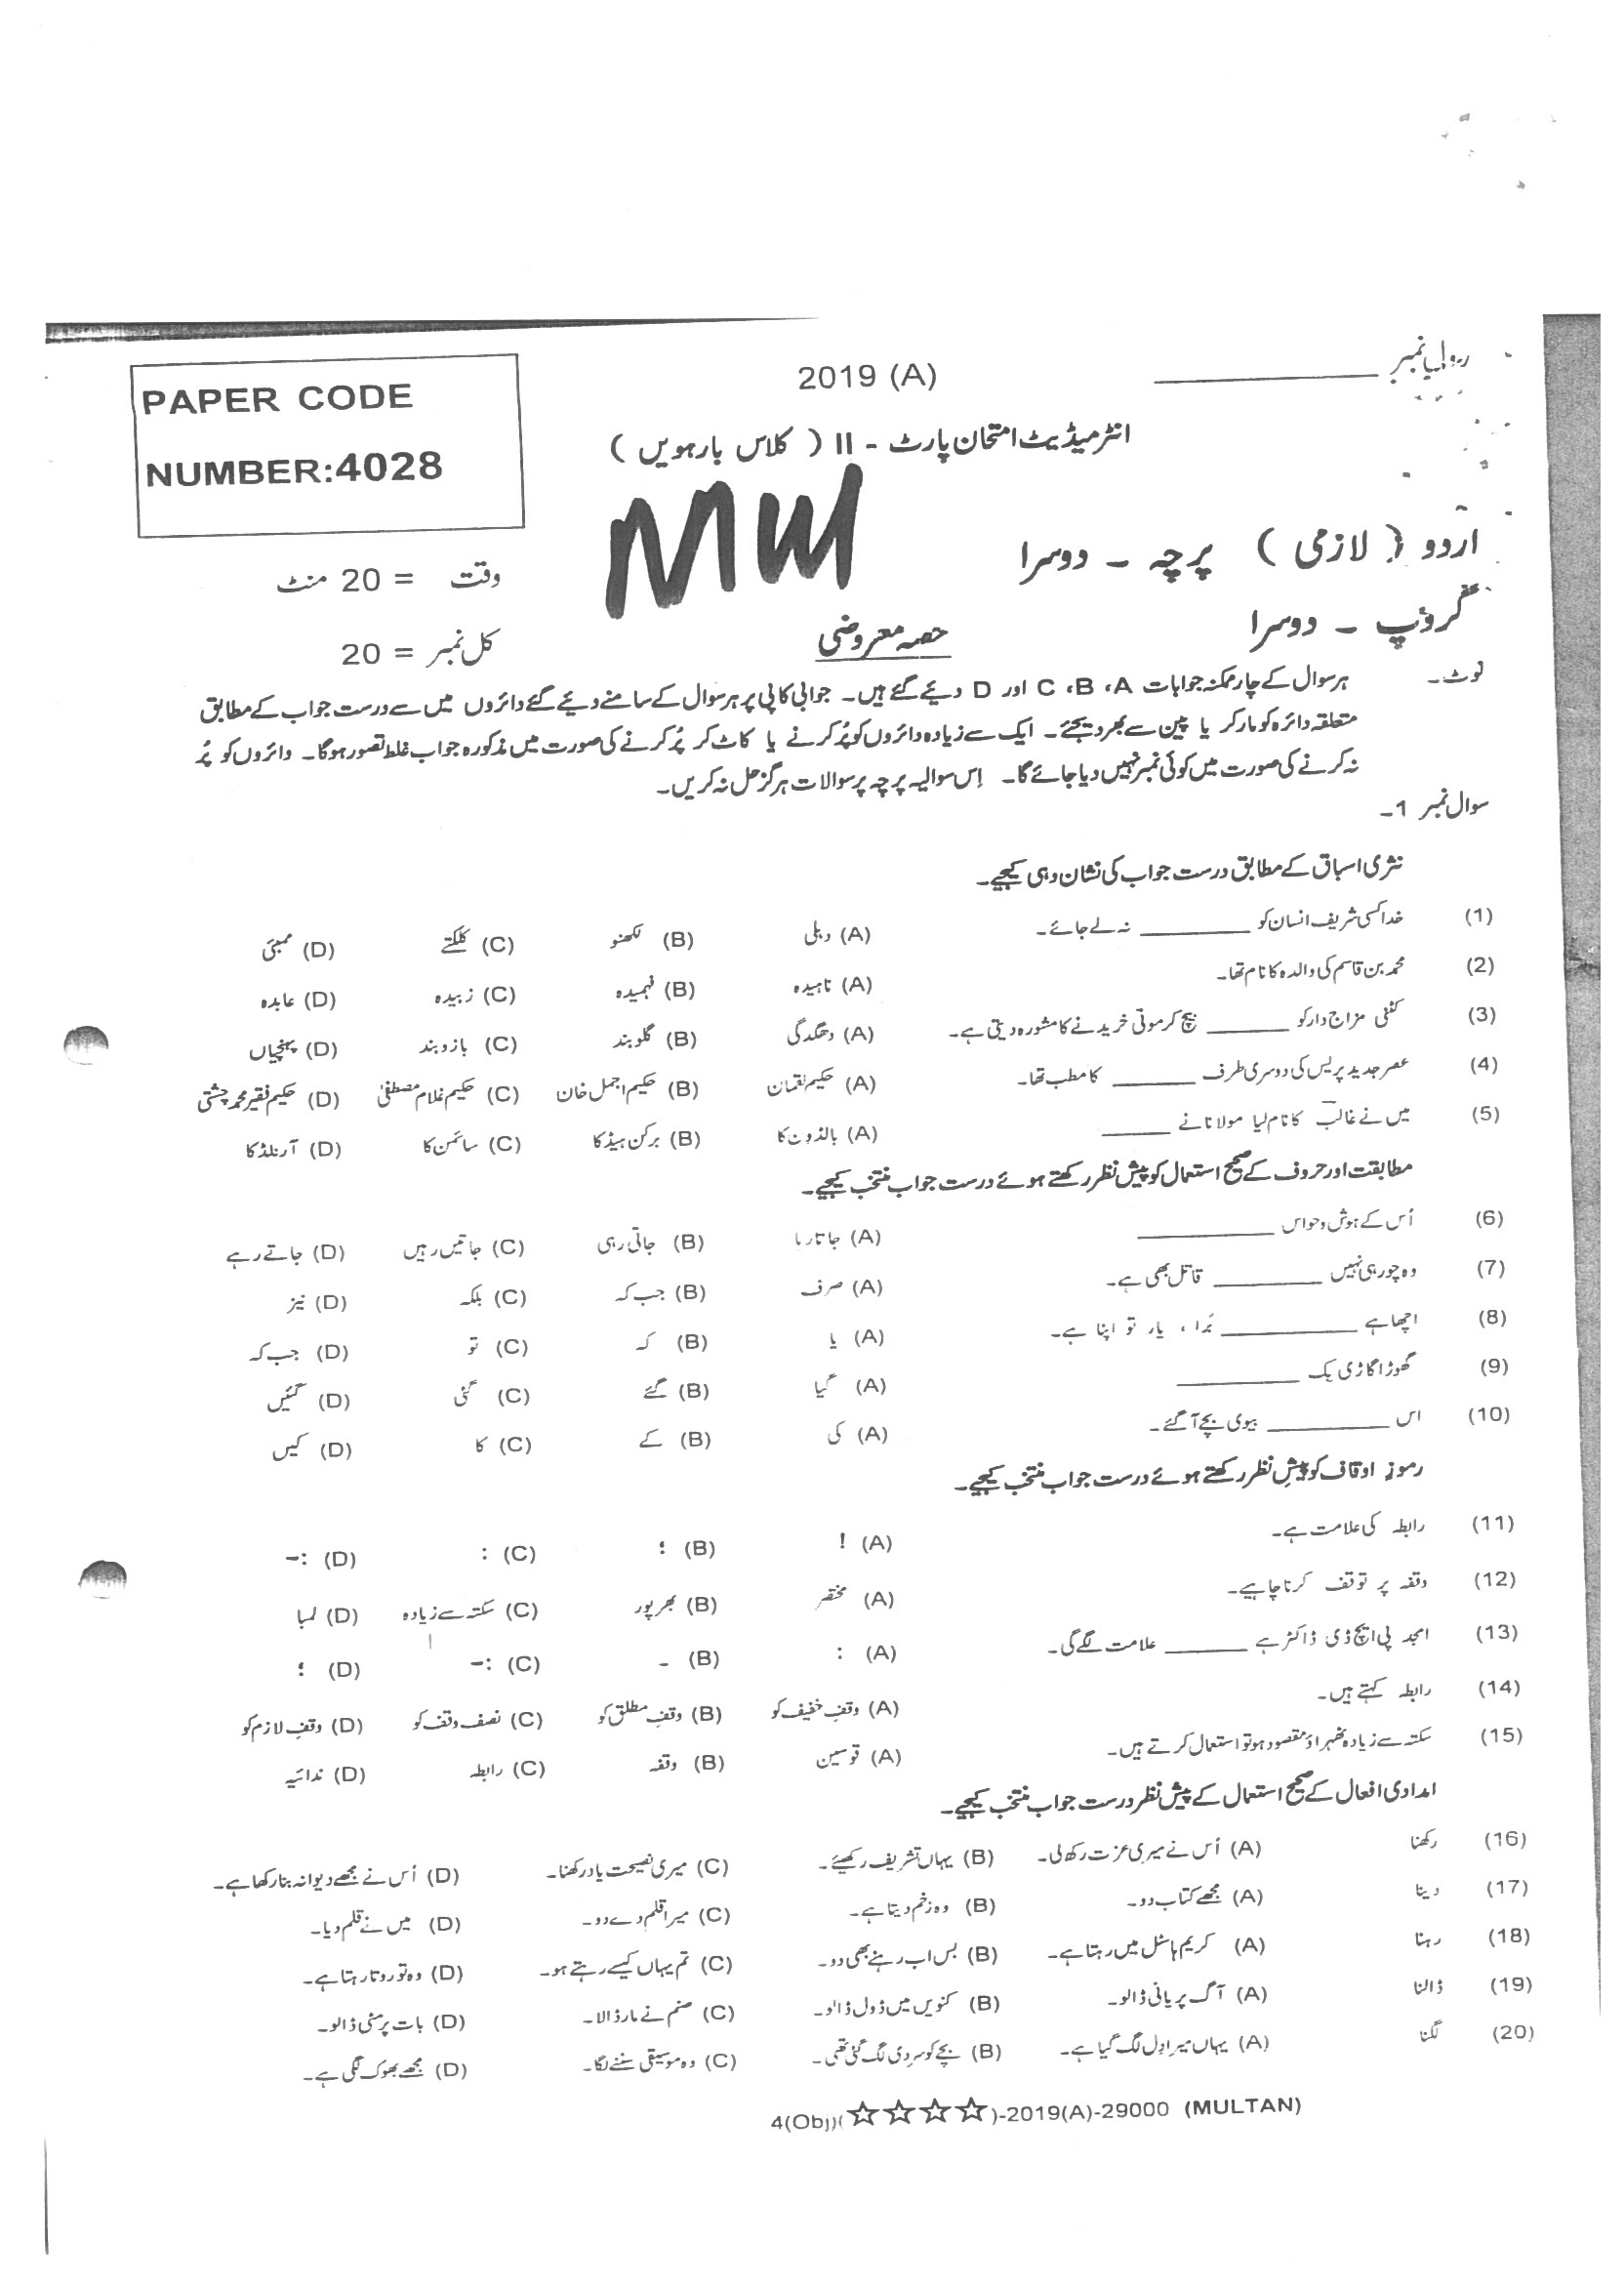 رول نمبر ____________
2019 (A)
PAPER CODE
NUMBER:4028
انٹرمیڈیٹ امتحان پارٹ - II ( کلاس بارہویں )
MW
اردو ( لازمی ) پرچہ - دوسرا
وقت = 20 منٹ
گروپ - دوسرا
حصہ معروضی
کل نمبر = 20
نوٹ۔ ہر سوال کے چار ممکنہ جوابات A، B، C اور D دیئے گئے ہیں۔ جوابی کاپی پر ہر سوال کے سامنے دیئے گئے دائروں میں سے درست جواب کے مطابق
متعلقہ دائرہ کو مارکر یا پین سے بھر دیجئے۔ ایک سے زیادہ دائروں کو پُر کرنے یا کاٹ کر پُر کرنے کی صورت میں مذکورہ جواب غلط تصور ہوگا۔ دائروں کو پُر
نہ کرنے کی صورت میں کوئی نمبر نہیں دیا جائے گا۔ اِس سوالیہ پرچہ پر سوالات ہرگز حل نہ کریں۔
سوال نمبر 1۔
نثری اسباق کے مطابق درست جواب کی نشان دہی کیجیے۔
(1) خدا کسی شریف انسان کو ________ نہ لے جائے۔ (A) دہلی (B) لکھنو (C) کلکتے (D) ممبئی
(2) محمد بن قاسم کی والدہ کا نام تھا۔ (A) ناہیدہ (B) فہمیدہ (C) زبیدہ (D) عابدہ
(3) کٹنی مزاج دار کو ________ بیچ کر موتی خریدنے کا مشورہ دیتی ہے۔ (A) دھگدگی (B) گلوبند (C) بازوبند (D) پہنچیاں
(4) عصر جدید پریس کی دوسری طرف ________ کا مطب تھا۔ (A) حکیم لقمان (B) حکیم اجمل خان (C) حکیم غلام مصطفیٰ (D) حکیم فقیر محمد چشتی
(5) میں نے غالب کا نام لیا مولانا نے ________ (A) بالڈون کا (B) برکن ہیڈ کا (C) سائمن کا (D) آرنلڈ کا
مطابقت اور حروف کے صحیح استعمال کو پیش نظر رکھتے ہوئے درست جواب منتخب کیجیے۔
(6) اُس کے ہوش و حواس ________ (A) جاتا رہا (B) جاتی رہی (C) جاتیں رہیں (D) جاتے رہے
(7) وہ چور ہی نہیں ________ قاتل بھی ہے۔ (A) صرف (B) جب کہ (C) بلکہ (D) نیز
(8) اچھا ہے ________ بُرا ، یار تو اپنا ہے۔ (A) یا (B) کہ (C) تو (D) جب کہ
(9) گھوڑا گاڑی بِک ________ (A) گیا (B) گئے (C) گئی (D) گئیں
(10) اس ________ بیوی بچے آ گئے۔ (A) کی (B) کے (C) کا (D) کیں
رموزِ اوقاف کو پیشِ نظر رکھتے ہوئے درست جواب منتخب کیجیے۔
(11) رابطہ کی علامت ہے۔ (A) ! (B) ؛ (C) : (D) :-
(12) وقفہ پر توقف کرنا چاہیے۔ (A) مختصر (B) بھرپور (C) سکتہ سے زیادہ (D) لمبا
(13) امجد پی ایچ ڈی ڈاکٹر ہے ________ علامت لگے گی۔ (A) : (B) - (C) :- (D) ؛
(14) رابطہ کہتے ہیں۔ (A) وقفِ خفیف کو (B) وقفِ مطلق کو (C) نصف وقف کو (D) وقفِ لازم کو
(15) سکتہ سے زیادہ ٹھہراؤ مقصود ہو تو استعمال کرتے ہیں۔ (A) قوسین (B) وقفہ (C) رابطہ (D) ندائیہ
امدادی افعال کے صحیح استعمال کے پیش نظر درست جواب منتخب کیجیے۔
(16) رکھنا (A) اُس نے میری عزت رکھ لی۔ (B) یہاں تشریف رکھیئے۔ (C) میری نصیحت یاد رکھنا۔ (D) اُس نے مجھے دیوانہ بنا رکھا ہے۔
(17) دینا (A) مجھے کتاب دو۔ (B) وہ زخم دیتا ہے۔ (C) میرا قلم دے دو۔ (D) میں نے قلم دیا۔
(18) رہنا (A) کریم ہاسٹل میں رہتا ہے۔ (B) بس اب رہنے بھی دو۔ (C) تم یہاں کیسے رہتے ہو۔ (D) وہ تو روتا رہتا ہے۔
(19) ڈالنا (A) آگ پر پانی ڈالو۔ (B) کنویں میں ڈول ڈالو۔ (C) صنم نے مار ڈالا۔ (D) بات پر مٹی ڈالو۔
(20) لگنا (A) یہاں میرا دل لگ گیا ہے۔ (B) بچے کو سردی لگ گئی تھی۔ (C) وہ موسیقی سننے لگا۔ (D) مجھے بھوک لگی ہے۔
4(Obj)(☆☆☆☆)-2019(A)-29000 (MULTAN)